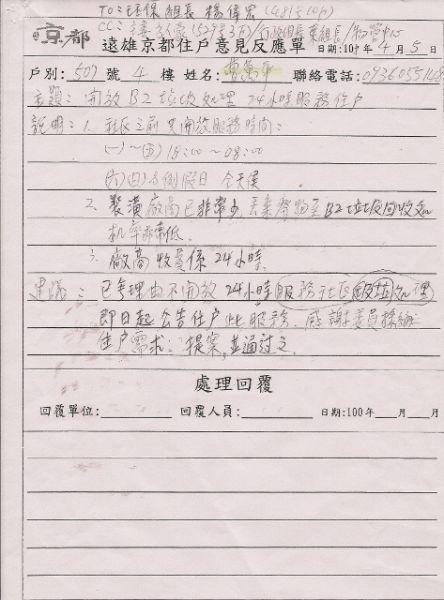 TO:環保組長 楊偉宏(481號10F)
京都 遠雄京都住戶意見反應單 日期:10年4月5日
戶別:507號4樓 姓名: 聯絡電話:0936055148
主題:開放B2垃圾處理24小時服務住戶
說明:1. 社區之前只開放服務時間:
(一)~(五)18:00~08:00
(六)(日)及例假日 全天候
2. 裝潢廠商已非常少 丟棄廢物至B2垃圾回收處
机率非常低.
3. 廠商收費係24小時.
建議: 已無理由不開放24小時服務社區垃圾處理
即日起公告住戶此服務. 感謝委員採納
住戶需求:提案,並通過之.
處理回覆
回覆單位: 回覆人員: 日期:100年 月 日